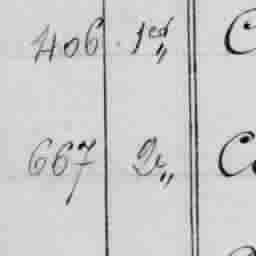 406 1ed„ C
667 2„ C